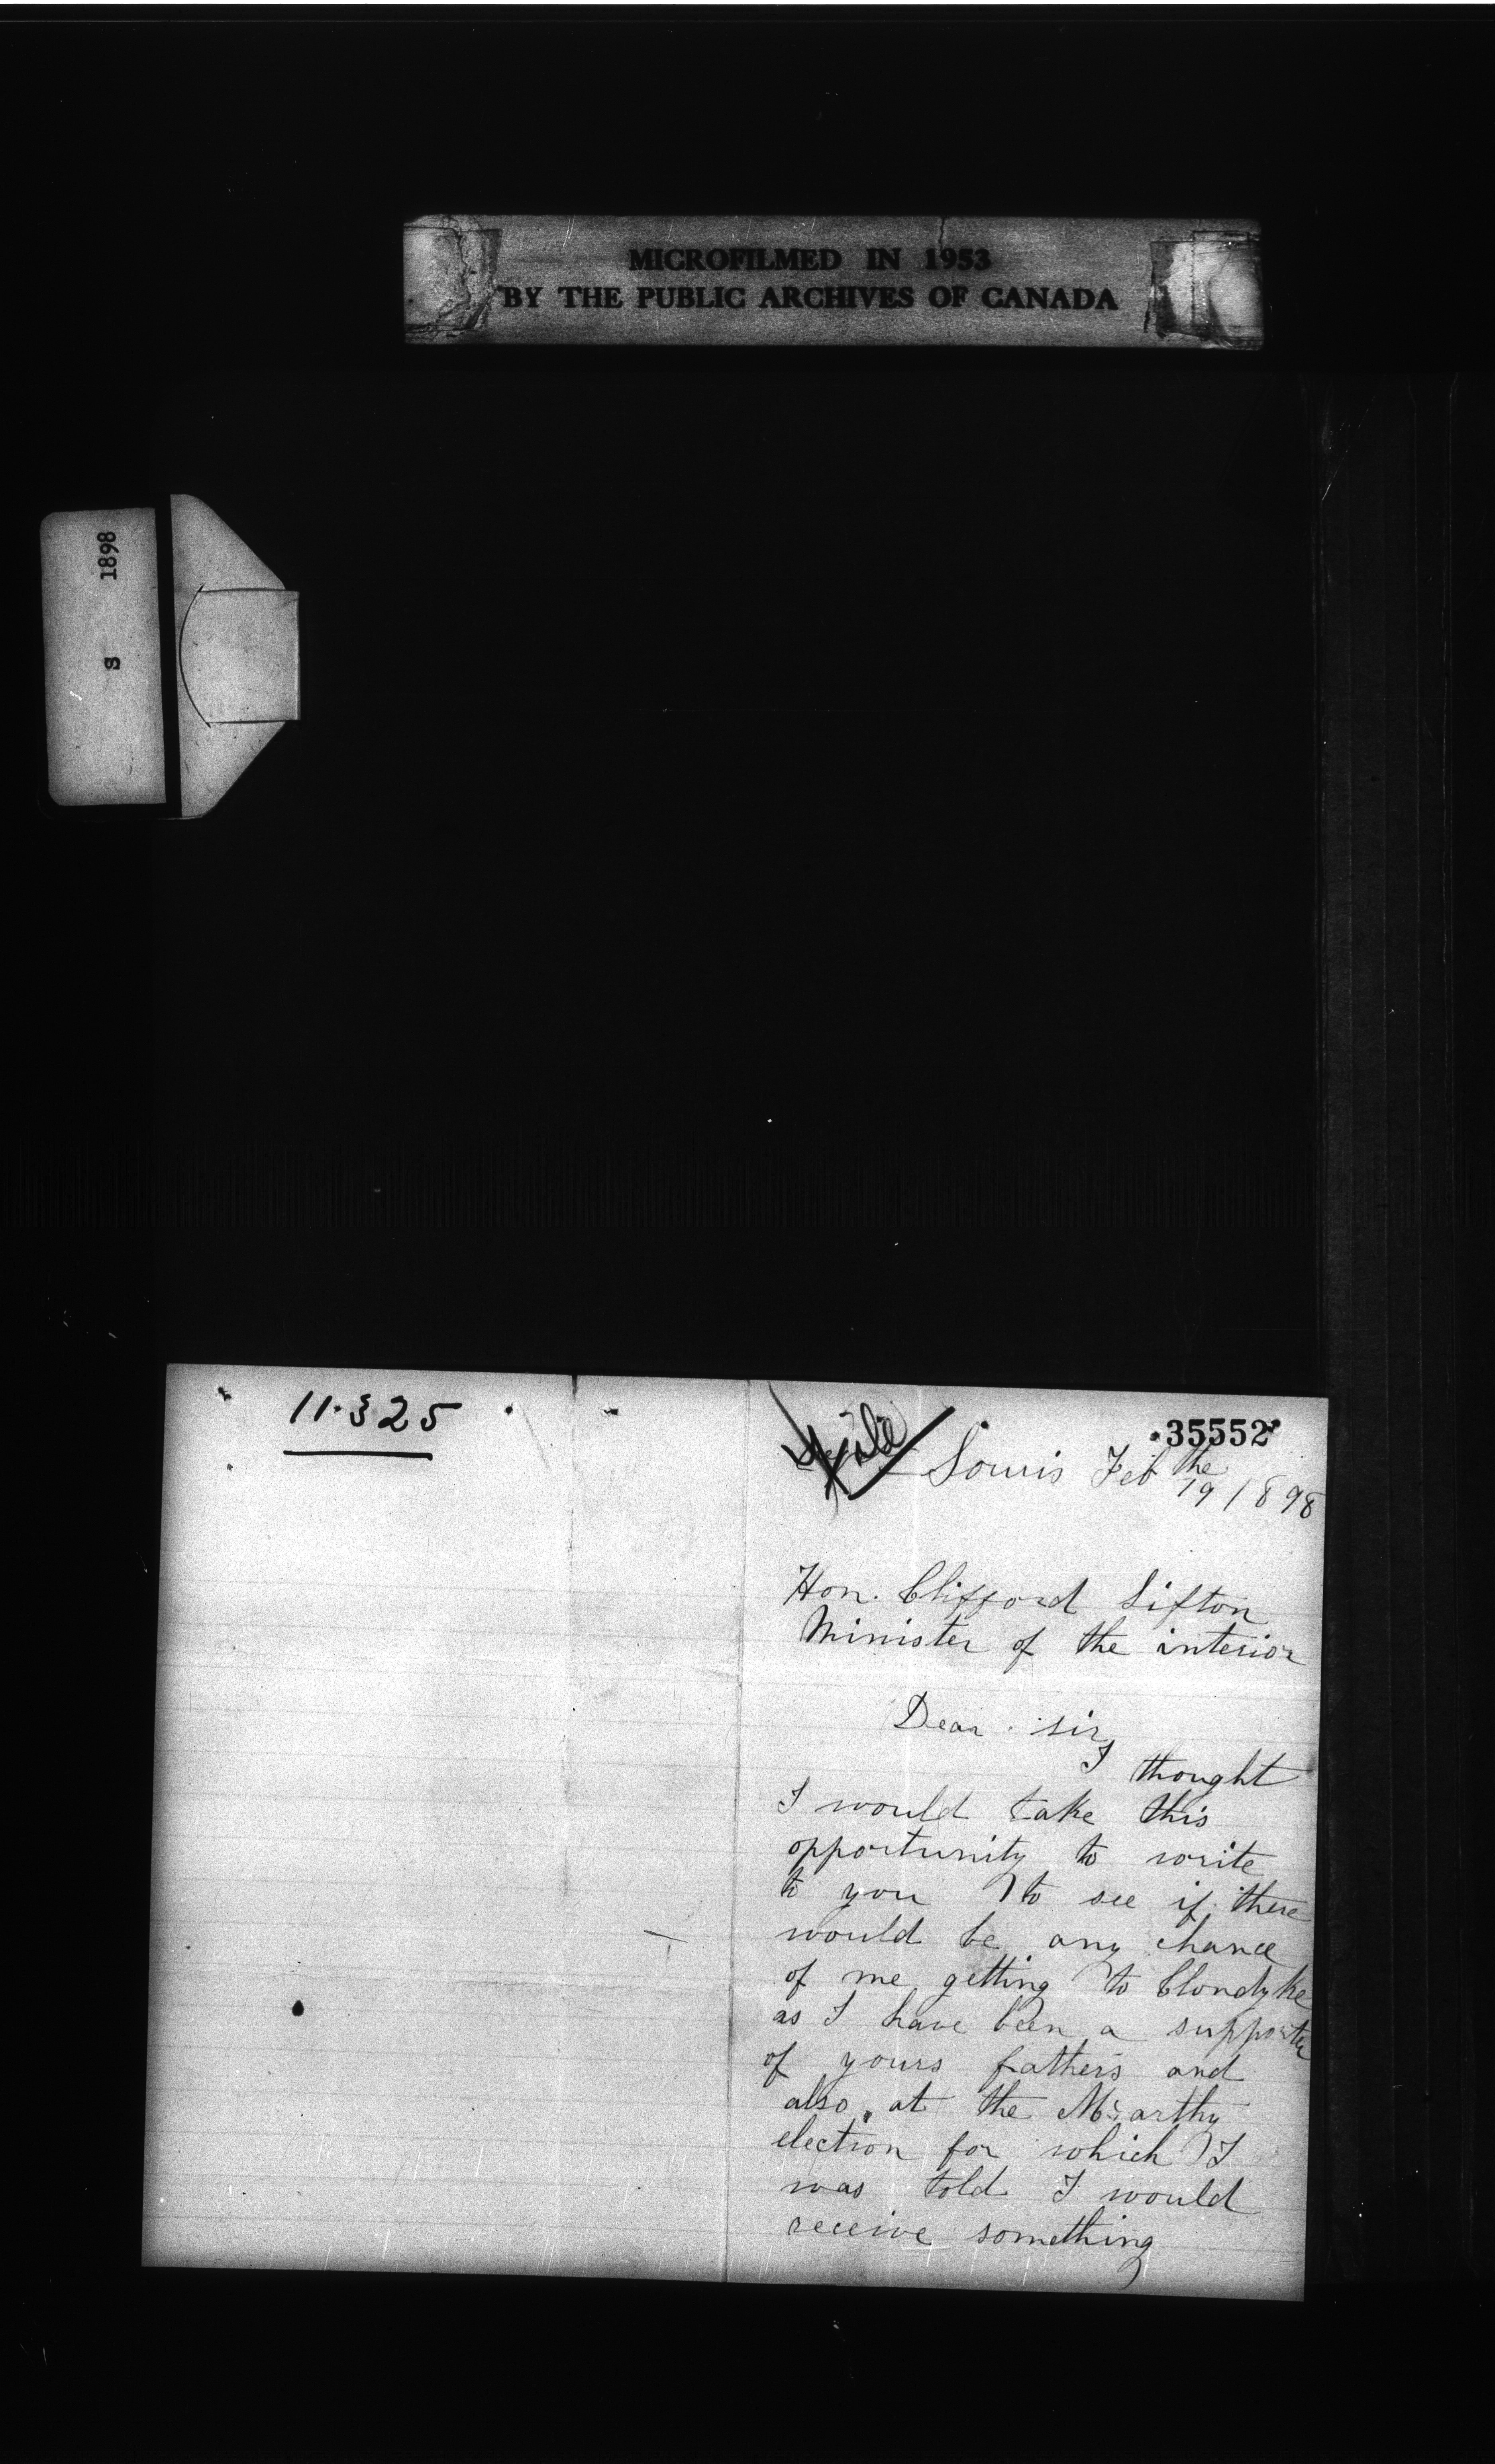 MICROFILMED IN 1953
BY THE PUBLIC ARCHIVES OF CANADA
S 1898
11.325
35552
Souris Feb the
19 1898
Hon. Clifford Sifton
Minister of the interior
Dear sir,
I thought
I would take this
opportunity to write
to you to see if there
would be any chance
of me getting to Clondyke
as I have been a supporter
of yours fathers and
also at the McCarthy
election for which I
was told I would
receive something